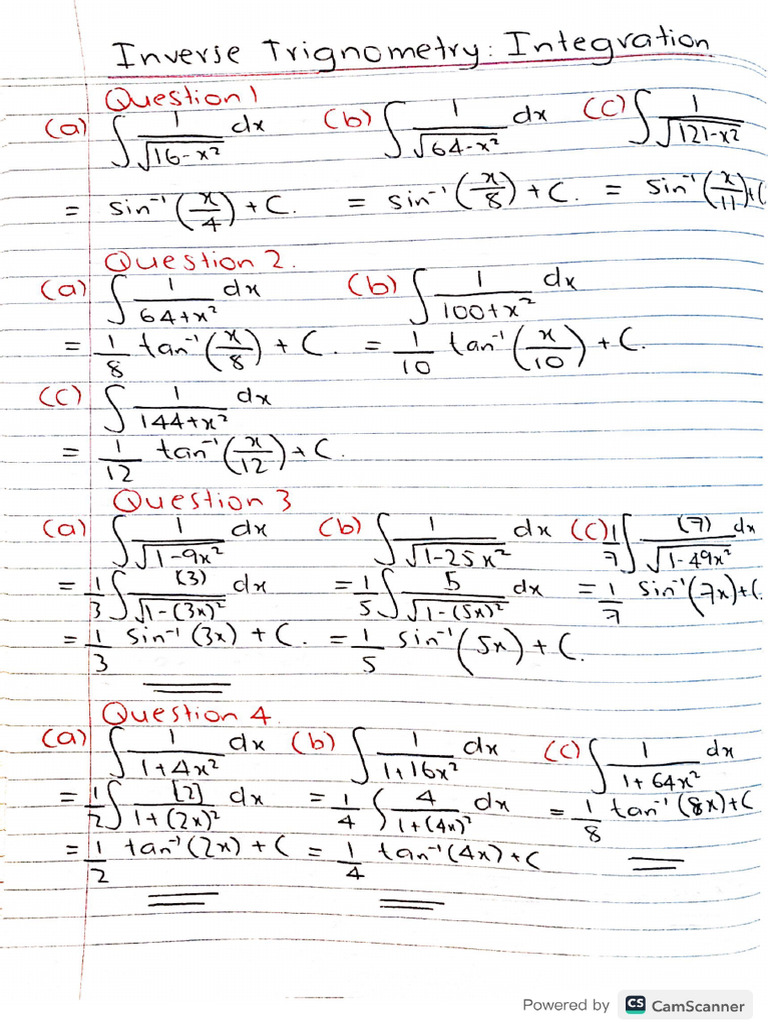 Inverse Trignometry: Integration
Question 1
(a) ∫ 1/√(16-x²) dx (b) ∫ 1/√(64-x²) dx (c) ∫ 1/√(121-x²)
= sin⁻¹(x/4) + C. = sin⁻¹(x/8) + C. = sin⁻¹(x/11) + C
Question 2.
(a) ∫ 1/(64+x²) dx (b) ∫ 1/(100+x²) dx
= 1/8 tan⁻¹(x/8) + C. = 1/10 tan⁻¹(x/10) + C.
(c) ∫ 1/(144+x²) dx
= 1/12 tan⁻¹(x/12) + C.
Question 3
(a) ∫ 1/√(1-9x²) dx (b) ∫ 1/√(1-25x²) dx (c) 1/7 ∫ (7)/√(1-49x²) dx
= 1/3 ∫ (3)/√(1-(3x)²) dx = 1/5 ∫ 5/√(1-(5x)²) dx = 1/7 sin⁻¹(7x) + C.
= 1/3 sin⁻¹(3x) + C. = 1/5 sin⁻¹(5x) + C.
Question 4
(a) ∫ 1/(1+4x²) dx (b) ∫ 1/(1+16x²) dx (c) ∫ 1/(1+64x²) dx
= 1/2 ∫ [2]/(1+(2x)²) dx = 1/4 ∫ 4/(1+(4x)²) dx = 1/8 tan⁻¹(8x) + C
= 1/2 tan⁻¹(2x) + C = 1/4 tan⁻¹(4x) + C
Powered by CS CamScanner